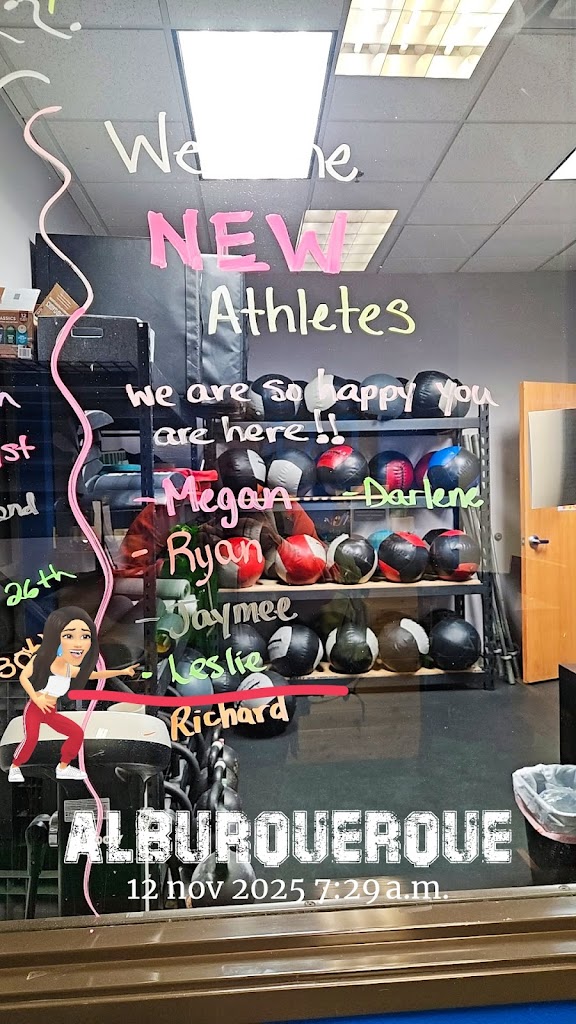 We
me
NEW
Athletes
we are so happy you
are here!!
- Megan
- Darlene
- Ryan
- Jaymee
- Leslie
Richard
26th
ALBURQUERQUE
12 nov 2025 7:29 a.m.